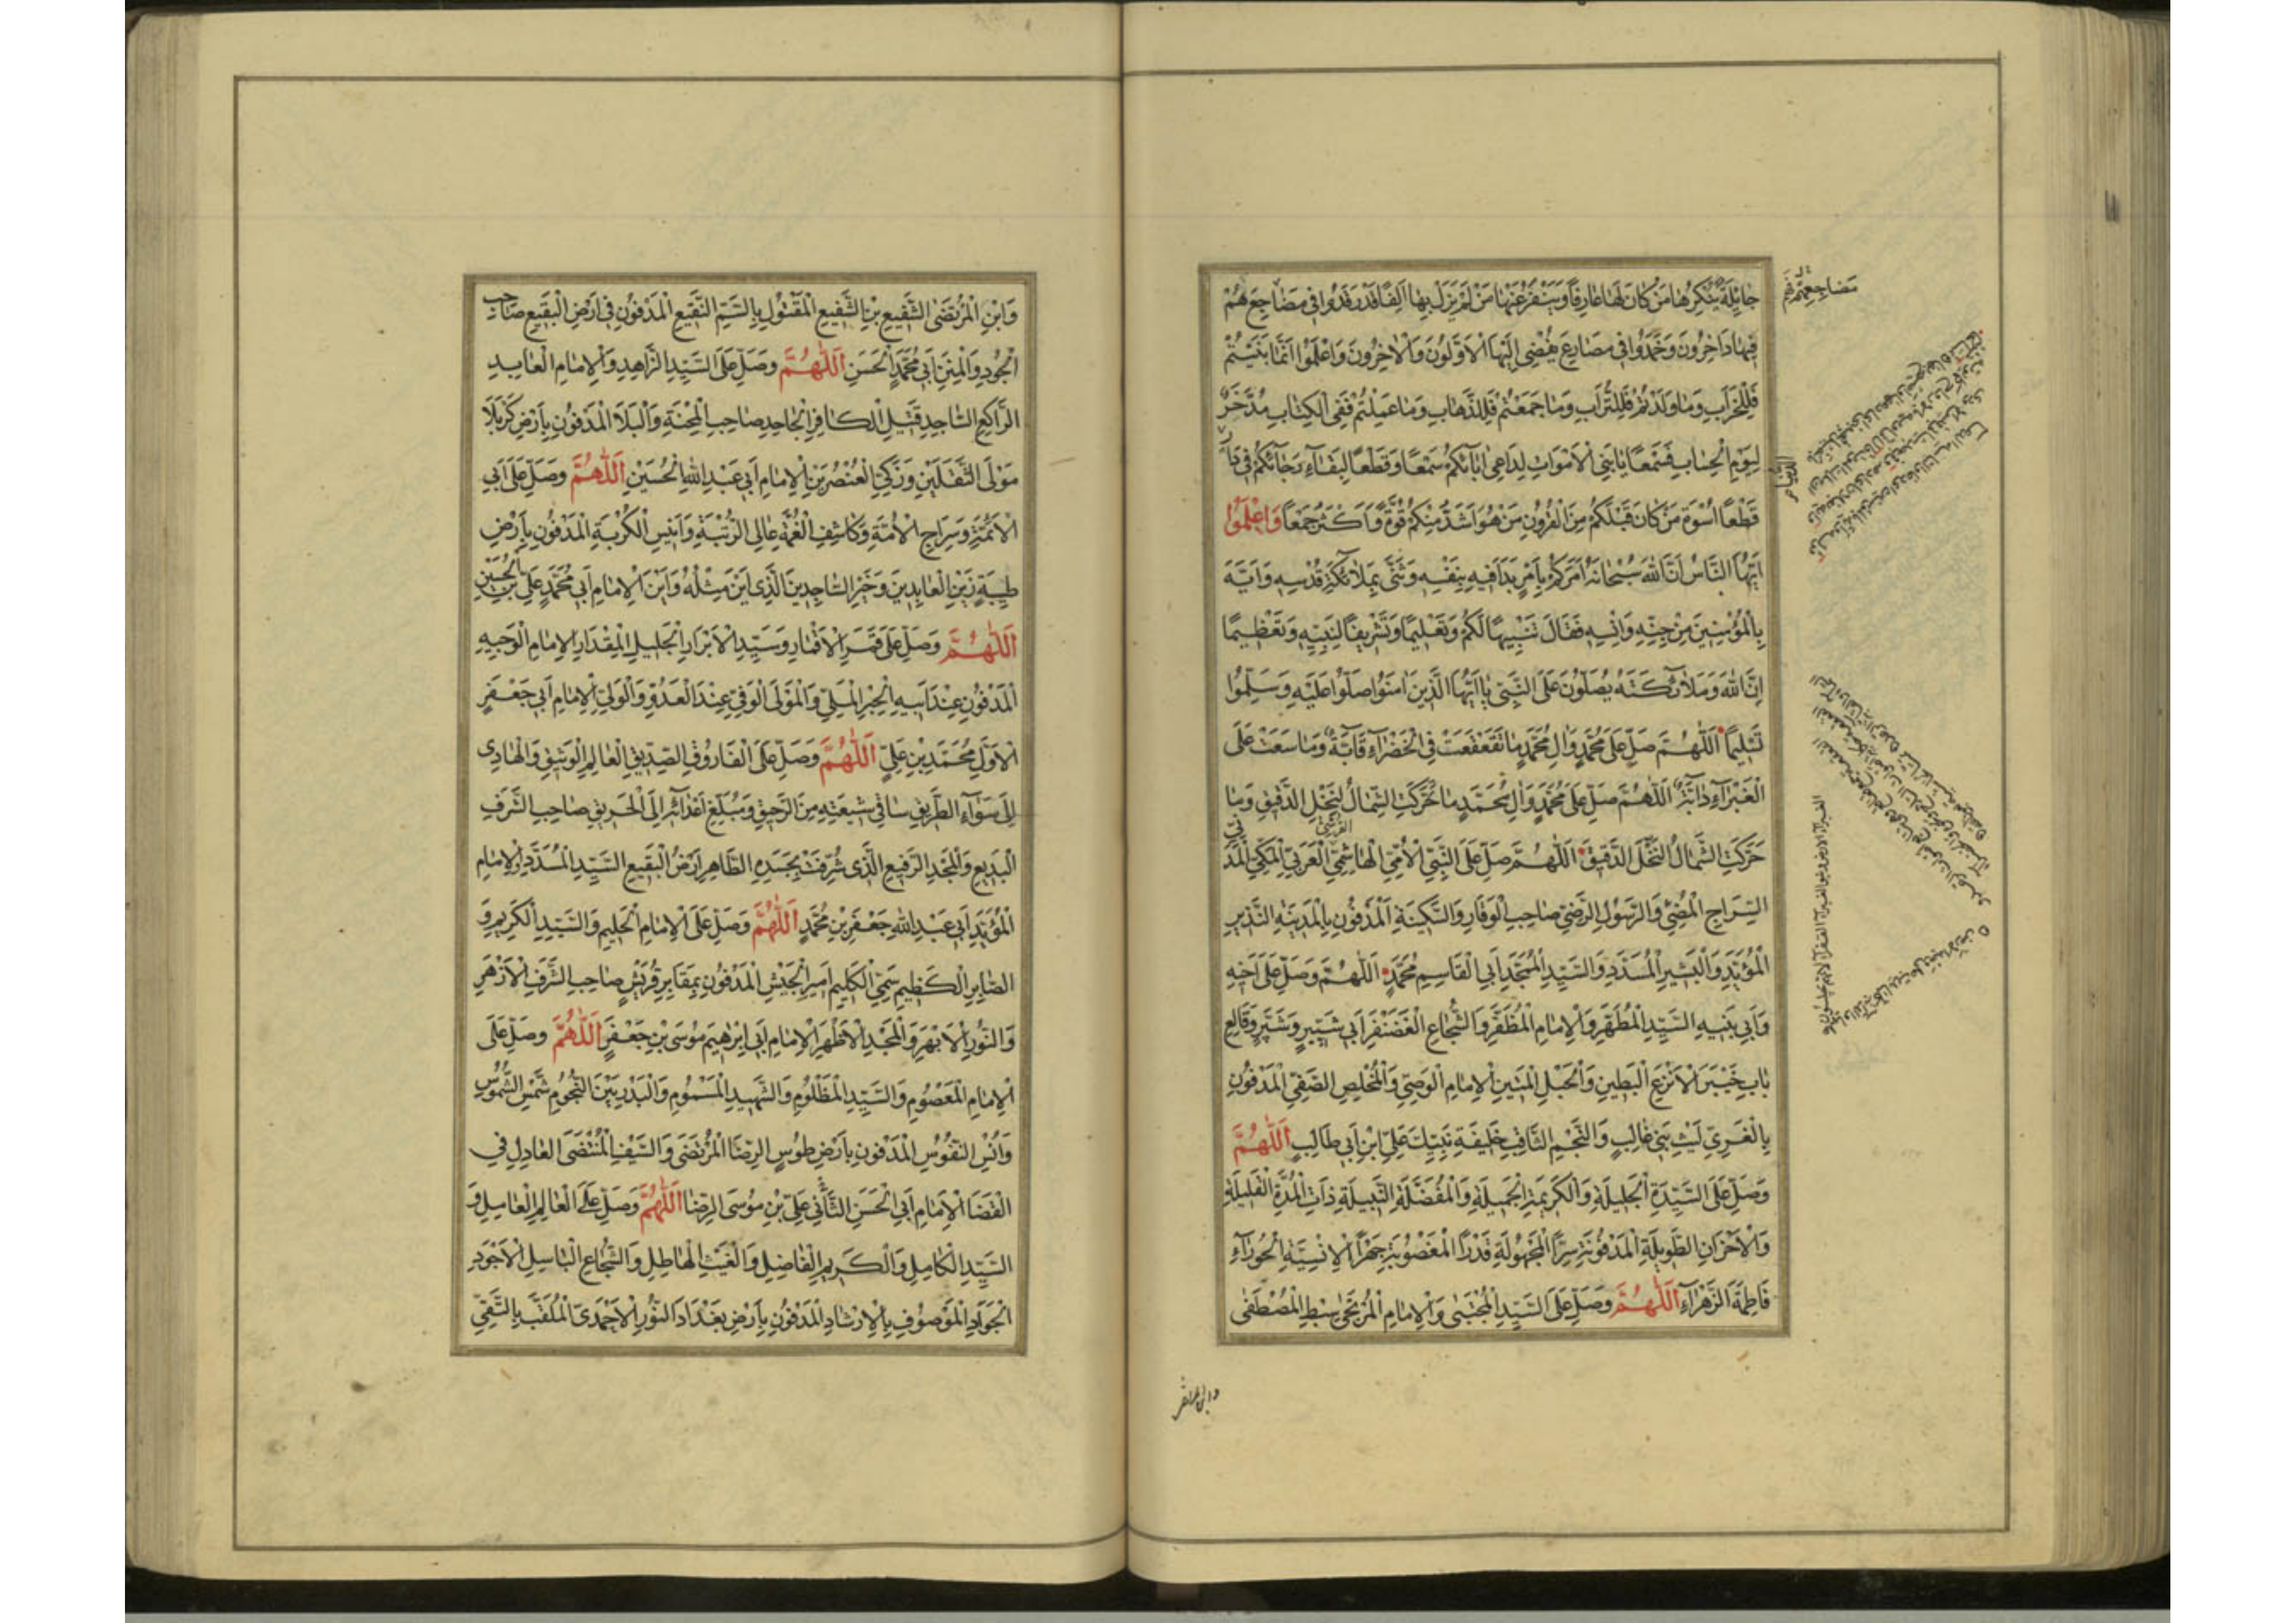 حائِلَةً يُنْكِرُهَا مَنْ كَانَ لَهَا عَارِفًا وَيَنْفَرُ عَنْهَا مَنْ لَمْ يَزَلْ بِهَا آلِفًا قَدْ رَقَدُوا فِي مَضَاجِعَ هُمْ
فِيهَا دَاخِرُونَ وَخَمَدُوا فِي مَصَارِعَ يُفْضِي إِلَيْهَا الْأَوَّلُونَ وَالْآخِرُونَ وَاعْلَمُوا أَنَّمَا بَنَيْتُمْ
فَلِلْخَرَابِ وَمَا وَلَدْتُمْ فَلِلتُّرَابِ وَمَا جَمَعْتُمْ فَلِلذَّهَابِ وَمَا عَمِلْتُمْ فَفِي الْكِتَابِ مُدَّخَرٌ
لِيَوْمِ الْحِسَابِ فَسَمْعًا يَا بَنِي الْأَمْوَاتِ لِدَاعِي آبَائِكُمْ سَمْعًا وَقَطْعًا لِبَقَاءِ رَجَائِكُمْ فِي
قَطْعًا أُسْوَةَ مَنْ كَانَ قَبْلَكُمْ مِنَ الْقُرُونِ مَنْ هُوَ أَشَدُّ مِنْكُمْ قُوَّةً وَأَكْثَرُ جَمْعًا وَاعْلَمُوا
أَيُّهَا النَّاسُ أَنَّ اللهَ سُبْحَانَهُ أَمَرَكُمْ بِأَمْرٍ بَدَأَ فِيهِ بِنَفْسِهِ وَثَنَّى بِمَلَائِكَةِ قُدْسِهِ وَأَيَّهَ
بِالْمُؤْمِنِينَ مِنْ جِنِّهِ وَإِنْسِهِ فَقَالَ تَنْبِيهًا لَكُمْ وَتَعْلِيمًا وَتَشْرِيفًا لِنَبِيِّهِ وَتَعْظِيمًا
إِنَّ اللهَ وَمَلَائِكَتَهُ يُصَلُّونَ عَلَى النَّبِيِّ يَا أَيُّهَا الَّذِينَ آمَنُوا صَلُّوا عَلَيْهِ وَسَلِّمُوا
تَسْلِيمًا اَللّٰهُمَّ صَلِّ عَلَى مُحَمَّدٍ وَآلِ مُحَمَّدٍ مَا تَقَعْقَعَتْ فِي الْخَضْرَاءِ قَابَّةٌ وَمَا سَعَتْ عَلَى
الْغَبْرَاءِ دَابَّةٌ اَللّٰهُمَّ صَلِّ عَلَى مُحَمَّدٍ وَآلِ مُحَمَّدٍ مَا تَحَرَّكَتِ الشِّمَالُ لِنَخْلِ الدَّقِيقِ وَمَا
حَرَّكَتِ الشَّمَالُ النَّخْلَ الدَّقِيقَ اَللّٰهُمَّ صَلِّ عَلَى النَّبِيِّ الْأُمِّيِّ الْهَاشِمِيِّ الْقُرَشِيِّ الْعَرَبِيِّ الْمَكِّيِّ الْمَدَنِيِّ
السِّرَاجِ الْمُضِيءِ وَالرَّسُولِ الرَّضِيِّ صَاحِبِ الْوَقَارِ وَالسَّكِينَةِ الْمَدْفُونِ بِالْمَدِينَةِ النَّذِيرِ
الْمُؤَيَّدِ وَالْبَشِيرِ الْمُسَدَّدِ وَالسَّيِّدِ الْمُمَجَّدِ أَبِي الْقَاسِمِ مُحَمَّدٍ اَللّٰهُمَّ وَصَلِّ عَلَى أَخِيهِ
وَأَبِي بَنِيهِ السَّيِّدِ الْمُطَهَّرِ وَالْإِمَامِ الْمُظَفَّرِ وَالشُّجَاعِ الْغَضَنْفَرِ أَبِي شَبِيرٍ وَشَبَّرٍ وَقَالِعِ
بَابِ خَيْبَرَ الْأَنْزَعِ الْبَطِينِ وَالْحَبْلِ الْمَتِينِ الْإِمَامِ الْوَصِيِّ وَالْمُخْلِصِ الصَّفِيِّ الْمَدْفُونِ
بِالْغَرِيِّ لَيْثِ بَنِي غَالِبٍ وَالنَّجْمِ الثَّاقِبِ خَلِيفَةِ نَبِيِّكَ عَلِيِّ ابْنِ أَبِي طَالِبٍ اَللّٰهُمَّ
وَصَلِّ عَلَى السَّيِّدَةِ الْجَلِيلَةِ وَالْكَرِيمَةِ الْجَمِيلَةِ وَالْمُفَضَّلَةِ النَّبِيلَةِ ذَاتِ الْمُدَّةِ الْقَلِيلَةِ
وَالْأَحْزَانِ الطَّوِيلَةِ الْمَدْفُونَةِ سِرًّا الْمَجْهُولَةِ قَدْرًا الْمَغْصُوبَةِ جَهْرًا الْإِنْسِيَّةِ الْحَوْرَاءِ
فَاطِمَةَ الزَّهْرَاءِ اَللّٰهُمَّ وَصَلِّ عَلَى السَّيِّدِ الْمُجْتَبَى وَالْإِمَامِ الْمُرْتَجَى سِبْطِ الْمُصْطَفَى
وَابْنِ الْمُرْتَضَى الشَّفِيعِ بْنِ الشَّفِيعِ الْمَقْتُولِ بِالسَّمِّ النَّقِيعِ الْمَدْفُونِ فِي أَرْضِ الْبَقِيعِ صَاحِبِ
الْجُودِ وَالْمِنَنِ أَبِي مُحَمَّدٍ الْحَسَنِ اَللّٰهُمَّ وَصَلِّ عَلَى السَّيِّدِ الزَّاهِدِ وَالْإِمَامِ الْعَابِدِ
الرَّاكِعِ السَّاجِدِ قَتِيلِ الْكَافِرِ الْجَاحِدِ صَاحِبِ الْمِحْنَةِ وَالْبَلَا الْمَدْفُونِ بِأَرْضِ كَرْبَلَا
مَوْلَى الثَّقَلَيْنِ وَزَكِيِّ الْعُنْصُرَيْنِ الْإِمَامِ أَبِي عَبْدِ اللهِ الْحُسَيْنِ اَللّٰهُمَّ وَصَلِّ عَلَى أَبِي
الْأَئِمَّةِ وَسِرَاجِ الْأُمَّةِ وَكَاشِفِ الْغُمَّةِ عَالِي الرُّتْبَةِ وَأَنِيسِ الْكُرْبَةِ الْمَدْفُونِ بِأَرْضِ
طَيْبَةَ زَيْنِ الْعَابِدِينَ وَخَيْرِ السَّاجِدِينَ الَّذِي أَيْنَ مِثْلُهُ وَأَيْنَ الْإِمَامِ أَبِي مُحَمَّدٍ عَلِيِّ بْنِ الْحُسَيْنِ
اَللّٰهُمَّ وَصَلِّ عَلَى قَمَرِ الْأَقْمَارِ وَسَيِّدِ الْأَبْرَارِ الْجَلِيلِ الْمِقْدَارِ الْإِمَامِ الْوَجِيهِ
الْمَدْفُونِ عِنْدَ أَبِيهِ الْحِبْرِ الْمَلِيِّ وَالْمَوْلَى الْوَفِيِّ عِنْدَ الْعَدُوِّ وَالْوَلِيِّ الْإِمَامِ أَبِي جَعْفَرٍ
الْأَوَّلِ مُحَمَّدِ بْنِ عَلِيٍّ اَللّٰهُمَّ وَصَلِّ عَلَى الْفَارُوقِ الصِّدِّيقِ الْعَالِمِ الْوَثِيقِ وَالْهَادِي
إِلَى سَوَاءِ الطَّرِيقِ سَاقِي شِيعَتِهِ مِنَ الرَّحِيقِ وَمُبَلِّغِ أَعْدَائِهِ إِلَى الْحَرِيقِ صَاحِبِ الشَّرَفِ
الْبَدِيعِ وَالْمَجْدِ الرَّفِيعِ الَّذِي شُرِّفَتْ بِجَسَدِهِ الطَّاهِرِ أَرْضُ الْبَقِيعِ السَّيِّدِ الْمُسَدَّدِ وَالْإِمَامِ
الْمُؤَيَّدِ أَبِي عَبْدِ اللهِ جَعْفَرِ بْنِ مُحَمَّدٍ اَللّٰهُمَّ وَصَلِّ عَلَى الْإِمَامِ الْحَلِيمِ وَالسَّيِّدِ الْكَرِيمِ وَ
الصَّابِرِ الْكَظِيمِ سَمِيِّ الْكَلِيمِ أَمِيرِ الْجَيْشِ الْمَدْفُونِ بِمَقَابِرِ قُرَيْشٍ صَاحِبِ الشَّرَفِ الْأَزْهَرِ
وَالنُّورِ الْأَبْهَرِ وَالْمَجْدِ الْأَظْهَرِ الْإِمَامِ أَبِي إِبْرٰهِيمَ مُوسَى بْنِ جَعْفَرٍ اَللّٰهُمَّ وَصَلِّ عَلَى
الْإِمَامِ الْمَعْصُومِ وَالسَّيِّدِ الْمَظْلُومِ وَالشَّهِيدِ الْمَسْمُومِ وَالْبَدْرِ بَيْنَ النُّجُومِ شَمْسِ الشُّمُوسِ
وَأُنْسِ النُّفُوسِ الْمَدْفُونِ بِأَرْضِ طُوسٍ الرِّضَا الْمُرْتَضَى وَالسَّيْفِ الْمُنْتَضَى الْعَادِلِ فِي
الْقَضَا الْإِمَامِ أَبِي الْحَسَنِ الثَّانِي عَلِيِّ بْنِ مُوسَى الرِّضَا اَللّٰهُمَّ وَصَلِّ عَلَى الْعَالِمِ الْعَامِلِ وَ
السَّيِّدِ الْكَامِلِ وَالْكَرِيمِ الْفَاضِلِ وَالْغَيْثِ الْهَاطِلِ وَالشُّجَاعِ الْبَاسِلِ الْأَجْوَدِ
الْجَوَادِ الْمَوْصُوفِ بِالْإِرْشَادِ الْمَدْفُونِ بِأَرْضِ بَغْدَادَ النُّورِ الْأَحْمَدِيِّ الْمُلَقَّبِ بِالتَّقِيِّ